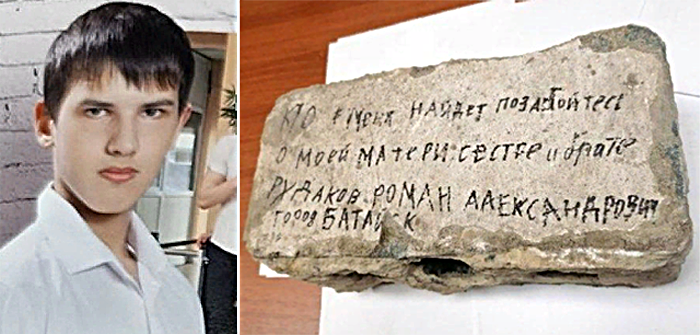 КТО меня НАЙДЕТ ПОЗАБОЙТЕСЬ
О МОЕЙ МАТЕРИ СЕСТРЕ и брате
РУДАКОВ РОМАН АЛЕКСАНДРОВИЧ
ГОРОД БАТАЙСК